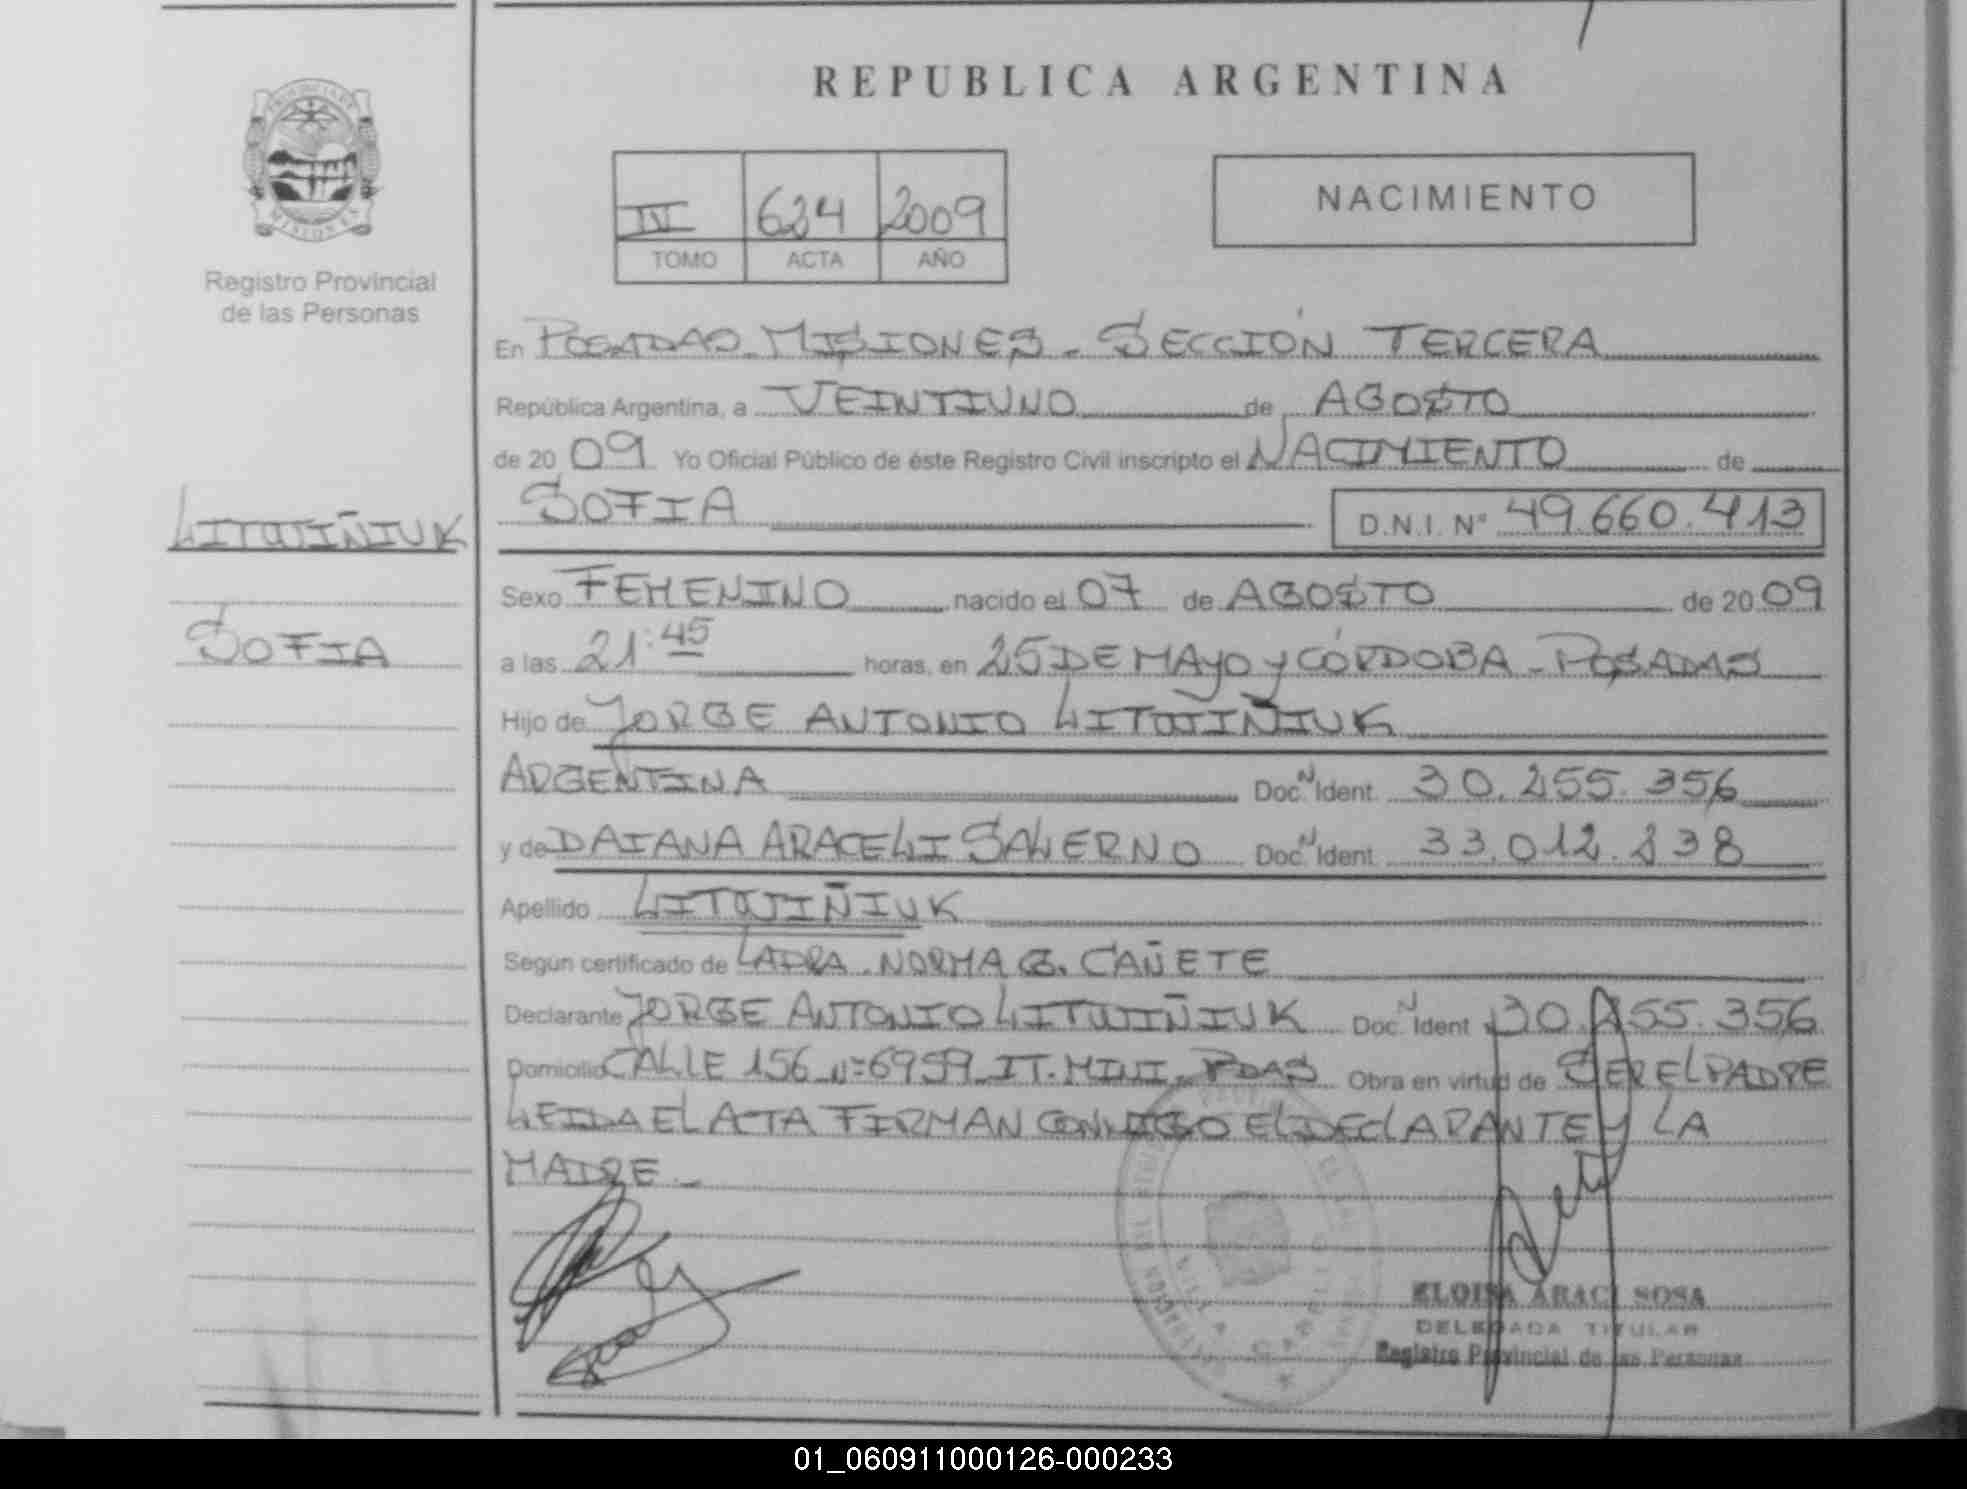 REPUBLICA ARGENTINA
PROVINCIA DE
MISIONES
Registro Provincial
de las Personas
IV 624 2009
TOMO ACTA AÑO
NACIMIENTO
En POSADAS-MISIONES - SECCIÓN TERCERA
República Argentina, a VEINTIUNO de AGOSTO
de 20 09 Yo Oficial Público de éste Registro Civil inscripto el NACIMIENTO de
SOFIA D.N.I. Nº 49.660.413
LITWIÑIUK
SOFIA
Sexo FEMENINO nacido el 07 de AGOSTO de 20 09
a las 21:45 horas, en 25 DE MAYO y CÓRDOBA - POSADAS
Hijo de JORGE ANTONIO LITWIÑIUK
ARGENTINA Doc. N Ident. 30.255.356
y de DAIANA ARACELI SALERNO Doc. N Ident. 33.012.238
Apellido LITWIÑIUK
Según certificado de LA DRA. NORMA G. CAÑETE
Declarante JORGE ANTONIO LITWIÑIUK Doc. N Ident 30.255.356
Domicilio CALLE 156 Nº 6959 IT. MINI - PDAS Obra en virtud de SER EL PADRE
LEIDA EL ACTA FIRMAN CONMIGO EL DECLARANTE Y LA
MADRE -
VILLA CABELLO
ELOISA ARACI SOSA
DELEGADA TITULAR
Registro Provincial de las Personas
01_060911000126-000233